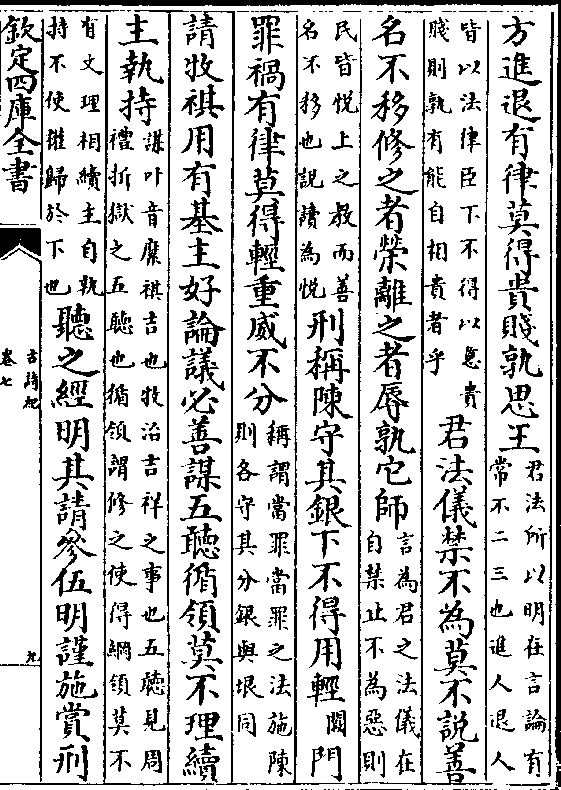 方進退有律莫得貴賤孰思王君法所以明在言論有
常不二三也進人退人
皆以法律臣下不得以意貴
賤則孰有能自相貴者乎君法儀禁不為莫不說善
名不移修之者榮離之者辱孰它師言為君之法儀在
自禁止不為惡則
民皆悦上之教而善
名不移也說讀為悦刑稱陳守其銀下不得用輕闕門
罪禍有律莫得輕重威不分稱謂當罪當罪之法施陳
則各守其分銀與垠同
請牧祺用有基主好論議必善謀五聽循領莫不理續
主執持謀叶音糜祺吉也牧治吉祥之事也五聽見周
禮折獄之五聽也循領謂修之使得綱領莫不
有文理相續主自執
持不使權歸於下也聽之經明其請參伍明謹施賞刑
欽定四庫全書
古詩紀
卷七
九